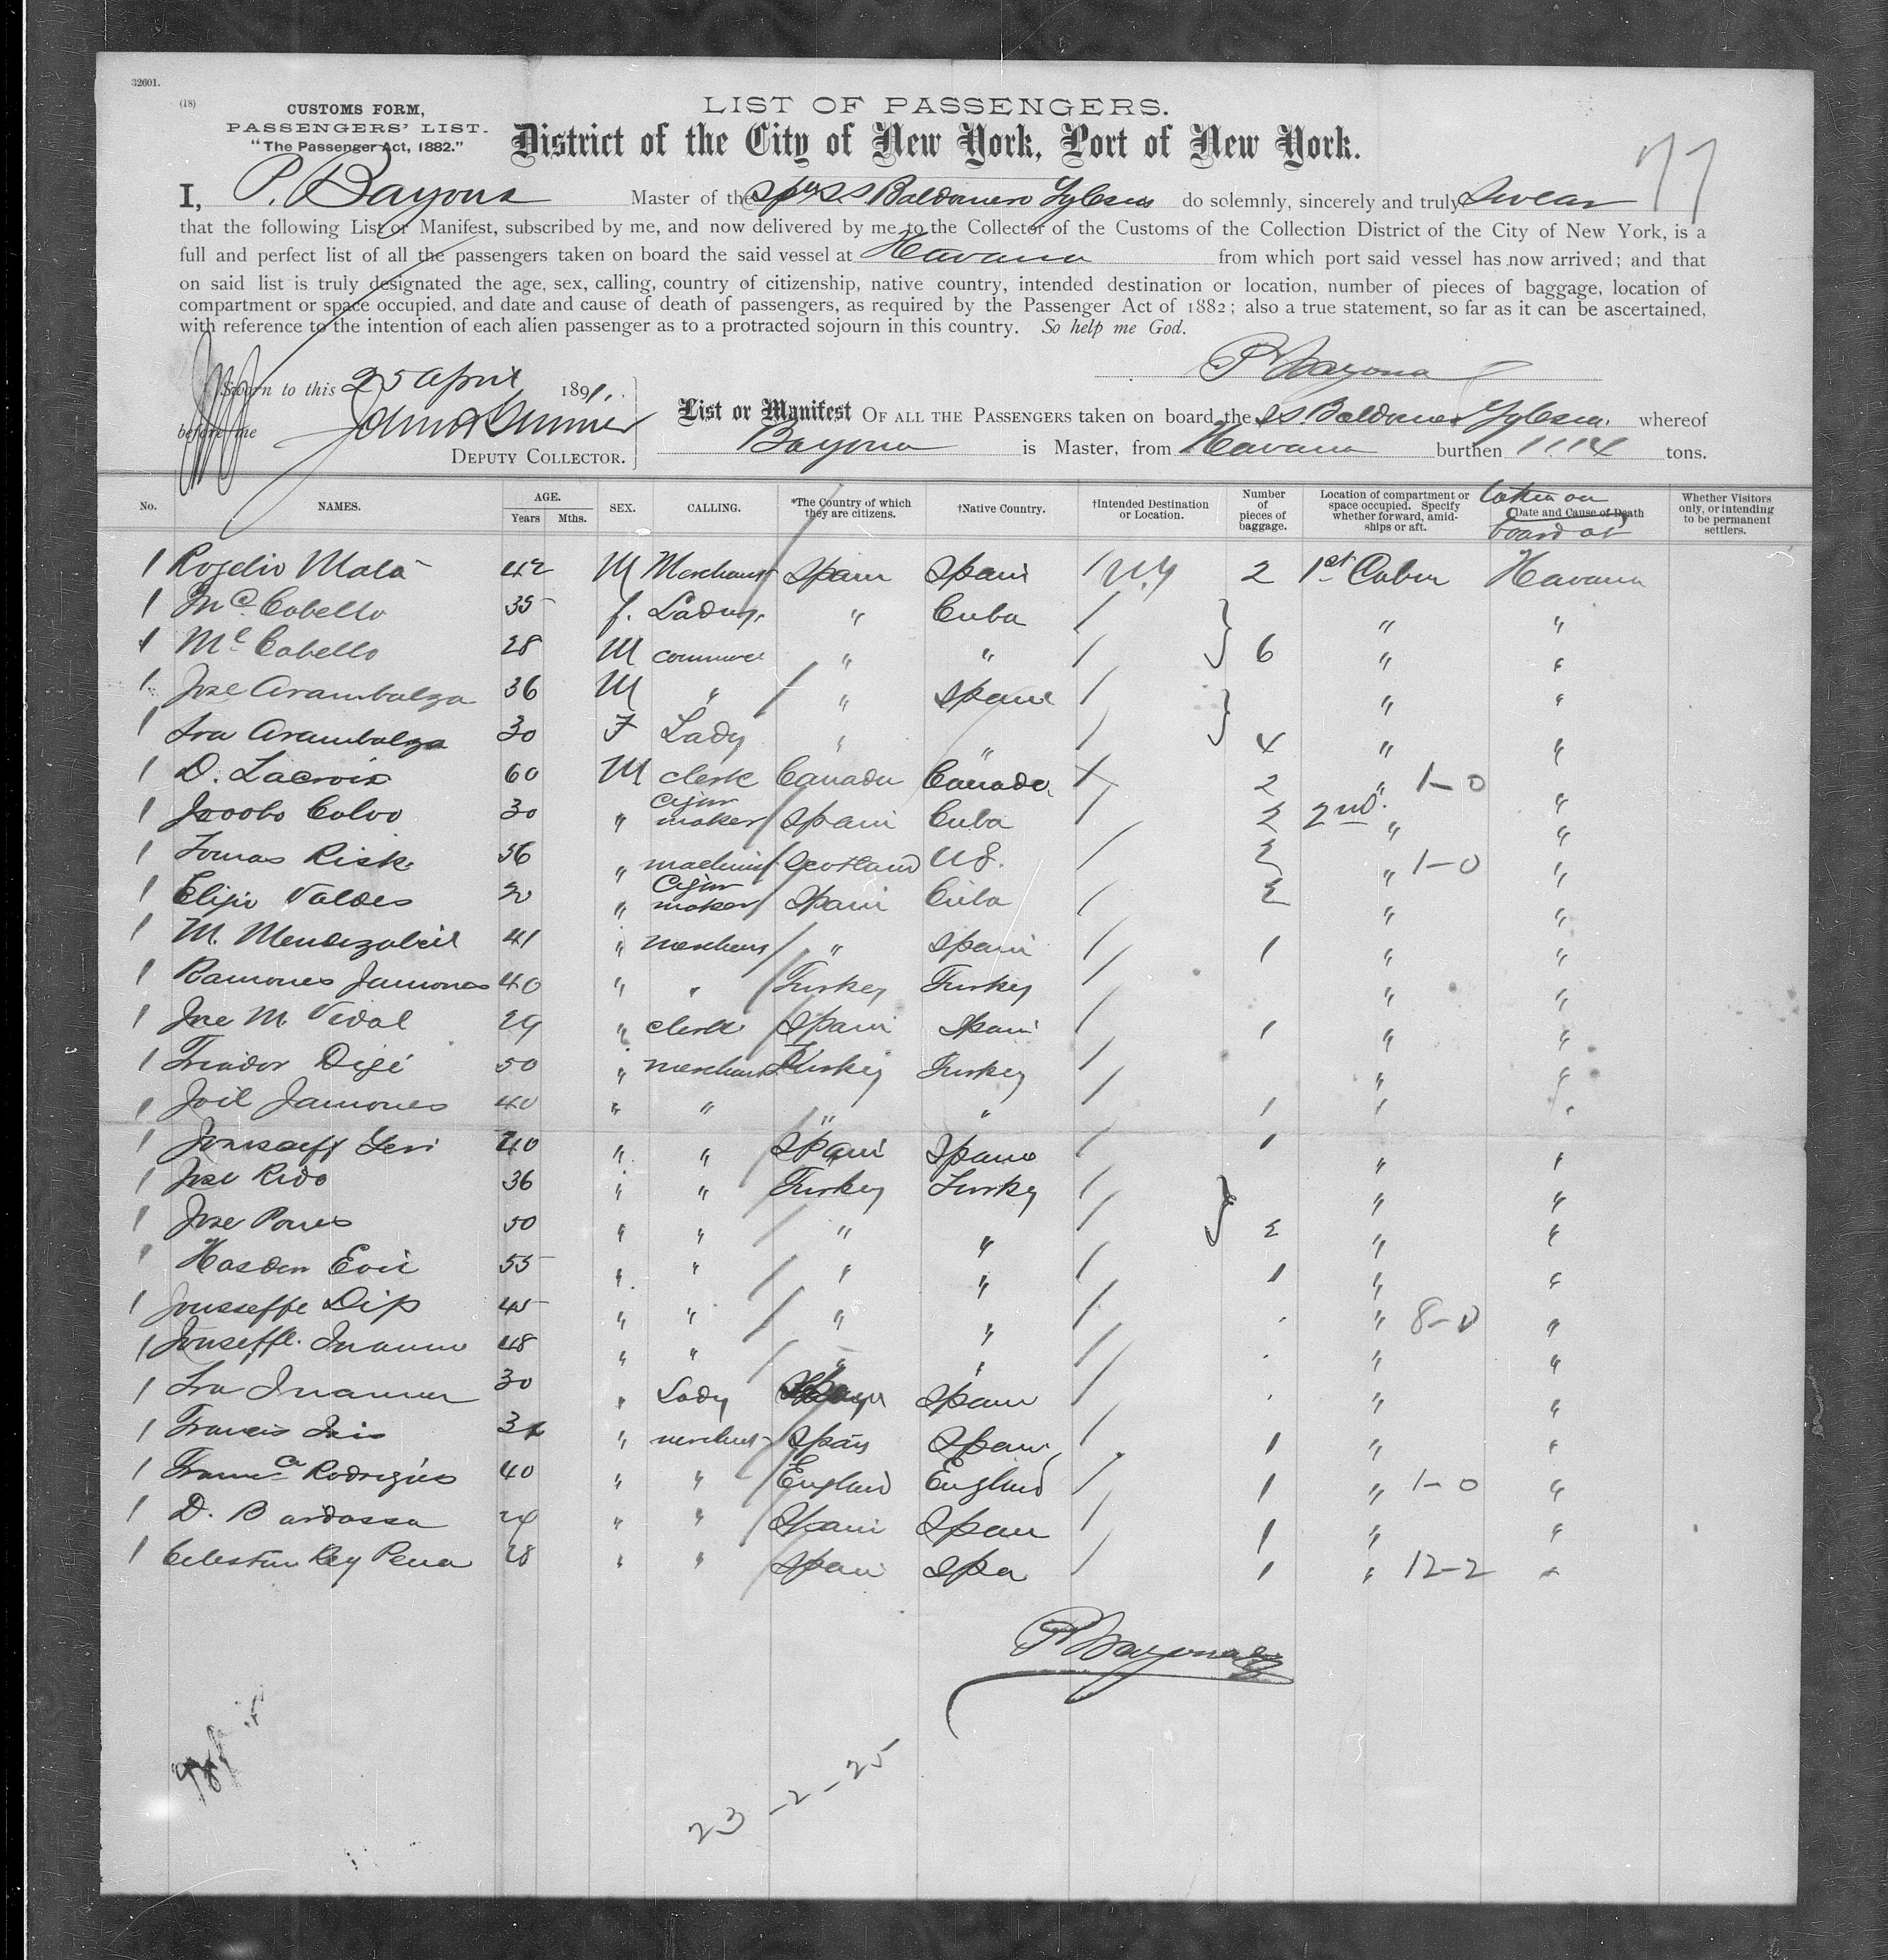 32601.
(18)
CUSTOMS FORM,
PASSENGERS' LIST.
"The Passenger Act, 1882."
LIST OF PASSENGERS.
District of the City of New York, Port of New York.
77
I, P. Bayona Master of the Spn SS Baldomero Yglesias do solemnly, sincerely and truly swear
that the following List or Manifest, subscribed by me, and now delivered by me to the Collector of the Customs of the Collection District of the City of New York, is a
full and perfect list of all the passengers taken on board the said vessel at Havana from which port said vessel has now arrived; and that
on said list is truly designated the age, sex, calling, country of citizenship, native country, intended destination or location, number of pieces of baggage, location of
compartment or space occupied, and date and cause of death of passengers, as required by the Passenger Act of 1882; also a true statement, so far as it can be ascertained,
with reference to the intention of each alien passenger as to a protracted sojourn in this country. So help me God.
P Bayona
Sworn to this 25 April 1891.
before me
DEPUTY COLLECTOR.
List or Manifest OF ALL THE PASSENGERS taken on board the SS. Baldomero Yglesias. whereof
Bayona is Master, from Havana burthen 1114 tons.
No. NAMES. AGE. Years Mths. SEX. CALLING. *The Country of which they are citizens. †Native Country. †Intended Destination or Location. Number of pieces of baggage. Location of compartment or space occupied. Specify whether forward, amidships or aft. Date and Cause of Death taken on board at Whether Visitors only, or intending to be permanent settlers.
1 Rogelio Mata 42 M Merchant Spain Spain / N.Y 2 1st Cabin Havana
1 Ma Cabello 35 f. Lady " Cuba / " "
1 Ml Cabello 28 M commerce " " / 6 " "
1 Jose Arambalza 36 M " " Spain / " "
1 Sra Arambalza 30 F Lady " " / 4 " "
1 D. Lacroix 60 M clerk Canada Canada 2 " 1-0 "
1 Jacobo Calvo 30 " Cigar maker Spain Cuba / 2 2nd " "
1 Tomas Risk 36 " machinist Scotland US. / 2 " 1-0 "
1 Elijio Valdes 20 " Cigar maker Spain Cuba / 2 " "
1 M. Mendizabal 41 " merchant " Spain / 1 " "
1 Ramones Jamones 40 " " Turkey Turkey / " "
1 Jose M. Vidal 29 " clerk Spain Spain / 1 " "
1 50 " merchant Turkey Turkey / " "
1 Jamones 40 " " " " / 1 " "
1 40 " " Spain Spain / 1 " "
1 Jose Rido 36 " " Turkey Turkey / " "
1 Jose Pones 50 " " " " 2 " "
1 55 " " " " / 1 " "
1 Jousseffe Dip 45 " " " " / " 8-0 "
1 48 " " " " / " "
1 Sra 30 " Lady Spain / " "
1 Francis 32 " merchant Spain Spain / 1 " "
1 Franca Rodrigues 40 " " England England / 1 " 1-0 "
1 D. Bardassa " " Spain Spain / 1 " "
1 Celestin Rey Pena 28 " " Spain Spa / 1 " 12-2 "
P Bayona
23-2-25